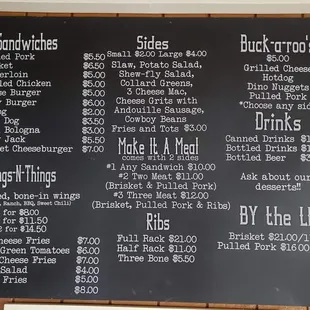 Sandwiches
Pulled Pork $5.50
$6.50
$5.00
Chicken $5.00
Cheese Burger $5.00
Burger $6.00
Dog $2.00
Dog $3.50
Bologna $3.00
Jack $5.50
Cheeseburger $7.00
Wings-N-Things
bone-in wings
Ranch, BBQ, Sweet Chili)
for $8.00
for $11.50
for $14.50
Cheese Fries $7.00
Green Tomatoes $6.00
Cheese Fries $7.00
Salad $4.00
Fries $5.00
$8.00
Sides
Small $2.00 Large $4.00
Slaw, Potato Salad,
Shew-fly Salad,
Collard Greens,
3 Cheese Mac,
Cheese Grits with
Andouille Sausage,
Cowboy Beans
Fries and Tots $3.00
Make It A Meal
comes with 2 sides
#1 Any Sandwich $10.00
#2 Two Meat $11.00
(Brisket & Pulled Pork)
#3 Three Meat $12.00
(Brisket, Pulled Pork & Ribs)
Ribs
Full Rack $21.00
Half Rack $11.00
Three Bone $5.50
Buck-a-roo's
$5.00
Grilled Cheese
Hotdog
Dino Nuggets
Pulled Pork
*Choose any side
Drinks
Canned Drinks
Bottled Drinks
Bottled Beer
Ask about our
desserts!!
BY the
Brisket $21.00
Pulled Pork $16.00